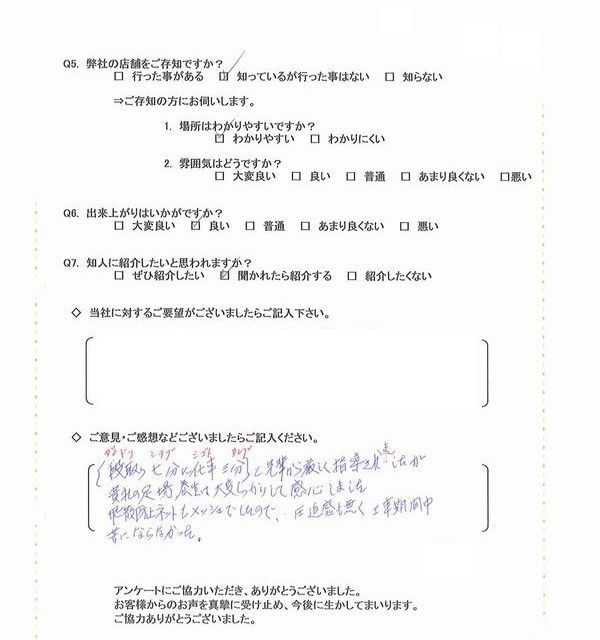 Q5. 弊社の店舗をご存知ですか？
□ 行った事がある ☑ 知っているが行った事はない □ 知らない
⇒ご存知の方にお伺いします。
1. 場所はわかりやすいですか？
☑ わかりやすい □ わかりにくい
2. 雰囲気はどうですか？
□ 大変良い □ 良い □ 普通 □ あまり良くない □悪い
Q6. 出来上がりはいかがですか？
□ 大変良い ☑ 良い □ 普通 □ あまり良くない □ 悪い
Q7. 知人に紹介したいと思われますか？
□ ぜひ紹介したい ☑ 聞かれたら紹介する □ 紹介したくない
◇ 当社に対するご要望がございましたらご記入下さい。
◇ ご意見・ご感想などございましたらご記入ください。
ダンドリ シチブ シゴト サンブ
段取り七分に仕事三分と先輩から厳しく指導されましたが
貴社の足場養生は大変しっかりして感心しました
飛散防止ネットもメッシュでしたので、圧迫感も無く工事期間中
苦にならなかった。
アンケートにご協力いただき、ありがとうございました。
お客様からのお声を真摯に受け止め、今後に生かしてまいります。
ご協力ありがとうございました。